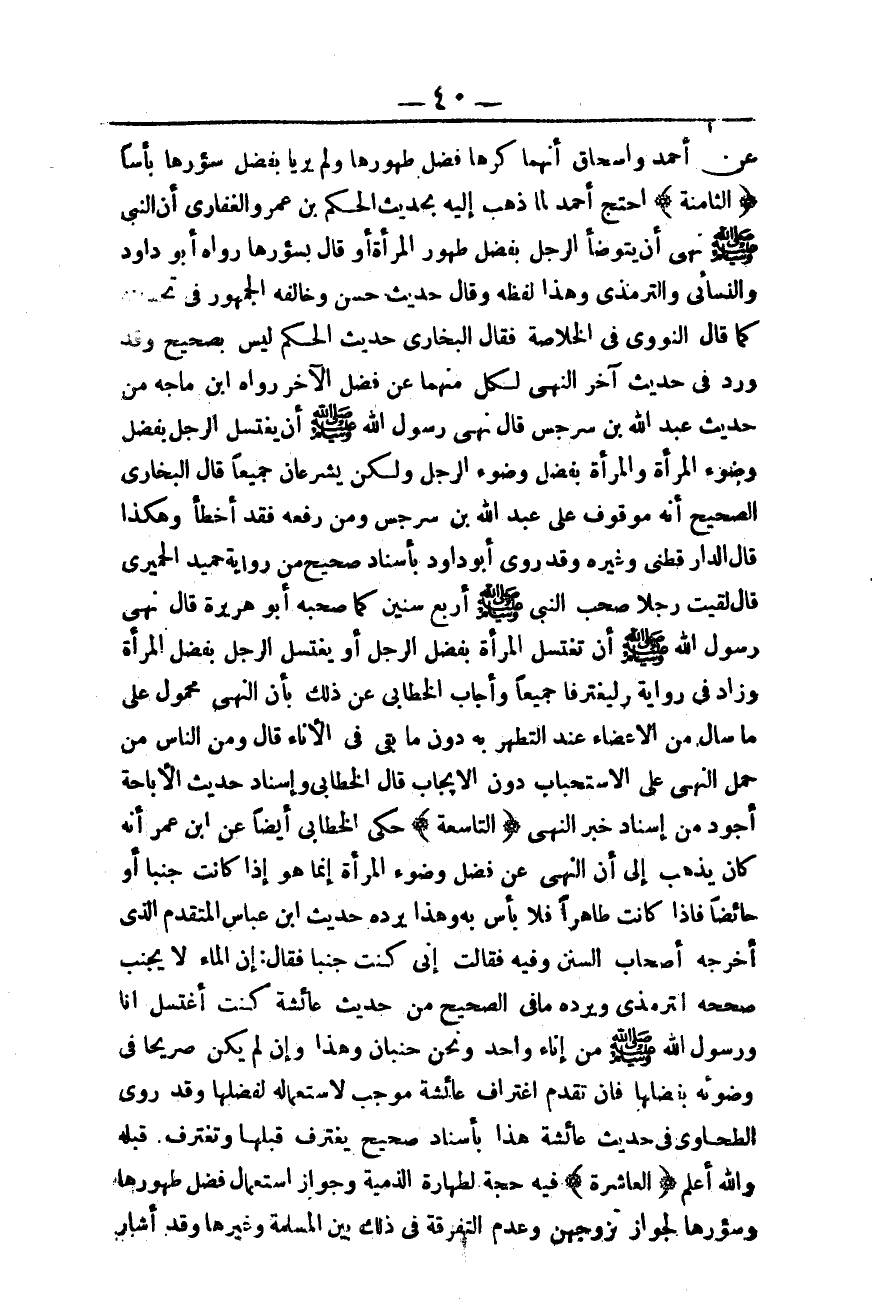 — ٤٠ —
عن أحمد واسحاق أنهما كرها فضل طهورها ولم يريا بفضل سؤرها بأساً
﴿ الثامنة ﴾ احتج أحمد لما ذهب إليه بحديث الحكم بن عمرو الغفارى أن النبى
ﷺ نهى أن يتوضأ الرجل بفضل طهور المرأة أو قال بسؤرها رواه أبو داود
والنسائى والترمذى وهذا لفظه وقال حديث حسن وخالفه الجمهور فى
كما قال النووى فى الخلاصة فقال البخارى حديث الحكم ليس بصحيح وقد
ورد فى حديث آخر النهى لكل منهما عن فضل الآخر رواه ابن ماجه من
حديث عبد الله بن سرجس قال نهى رسول الله ﷺ أن يغتسل الرجل بفضل
وضوء المرأة والمرأة بفضل وضوء الرجل ولكن يشرعان جميعاً قال البخارى
الصحيح أنه موقوف على عبد الله بن سرجس ومن رفعه فقد أخطأ وهكذا
قال الدار قطنى وغيره وقد روى أبو داود بأسناد صحيح من رواية حميد الحميرى
قال لقيت رجلا صحب النبى ﷺ أربع سنين كما صحبه أبو هريرة قال نهى
رسول الله ﷺ أن تغتسل المرأة بفضل الرجل أو يغتسل الرجل بفضل المرأة
وزاد فى رواية وليغترفا جميعاً وأجاب الخطابى عن ذلك بأن النهى محمول على
ما سال من الاعضاء عند التطهر به دون ما بقى فى الأناء قال ومن الناس من
حمل النهى على الاستحباب دون الايجاب قال الخطابى وإسناد حديث الأباحة
أجود من إسناد خبر النهى ﴿ التاسعة ﴾ حكى الخطابى أيضاً عن ابن عمر أنه
كان يذهب إلى أن النهى عن فضل وضوء المرأة إنما هو إذا كانت جنبا أو
حائضاً فاذا كانت طاهراً فلا بأس به وهذا يرده حديث ابن عباس المتقدم الذى
أخرجه أصحاب السنن وفيه فقالت إنى كنت جنبا فقال: إن الماء لا يجنب
صححه الترمذى ويرده مافى الصحيح من حديث عائشة كنت أغتسل انا
ورسول الله ﷺ من إناء واحد ونحن جنبان وهذا وإن لم يكن صريحا فى
وضوئه بفضلها فان تقدم اغتراف عائشة موجب لاستعماله لفضلها وقد روى
الطحاوى فى حديث عائشة هذا بأسناد صحيح يغترف قبلها وتغترف. قبله
والله أعلم ﴿ العاشرة ﴾ فيه حجة لطهارة الذمية وجواز استعمال فضل طهورها
وسؤرها لجواز تزوجهن وعدم التفرقة فى ذلك بين المسلمة وغيرها وقد أشار